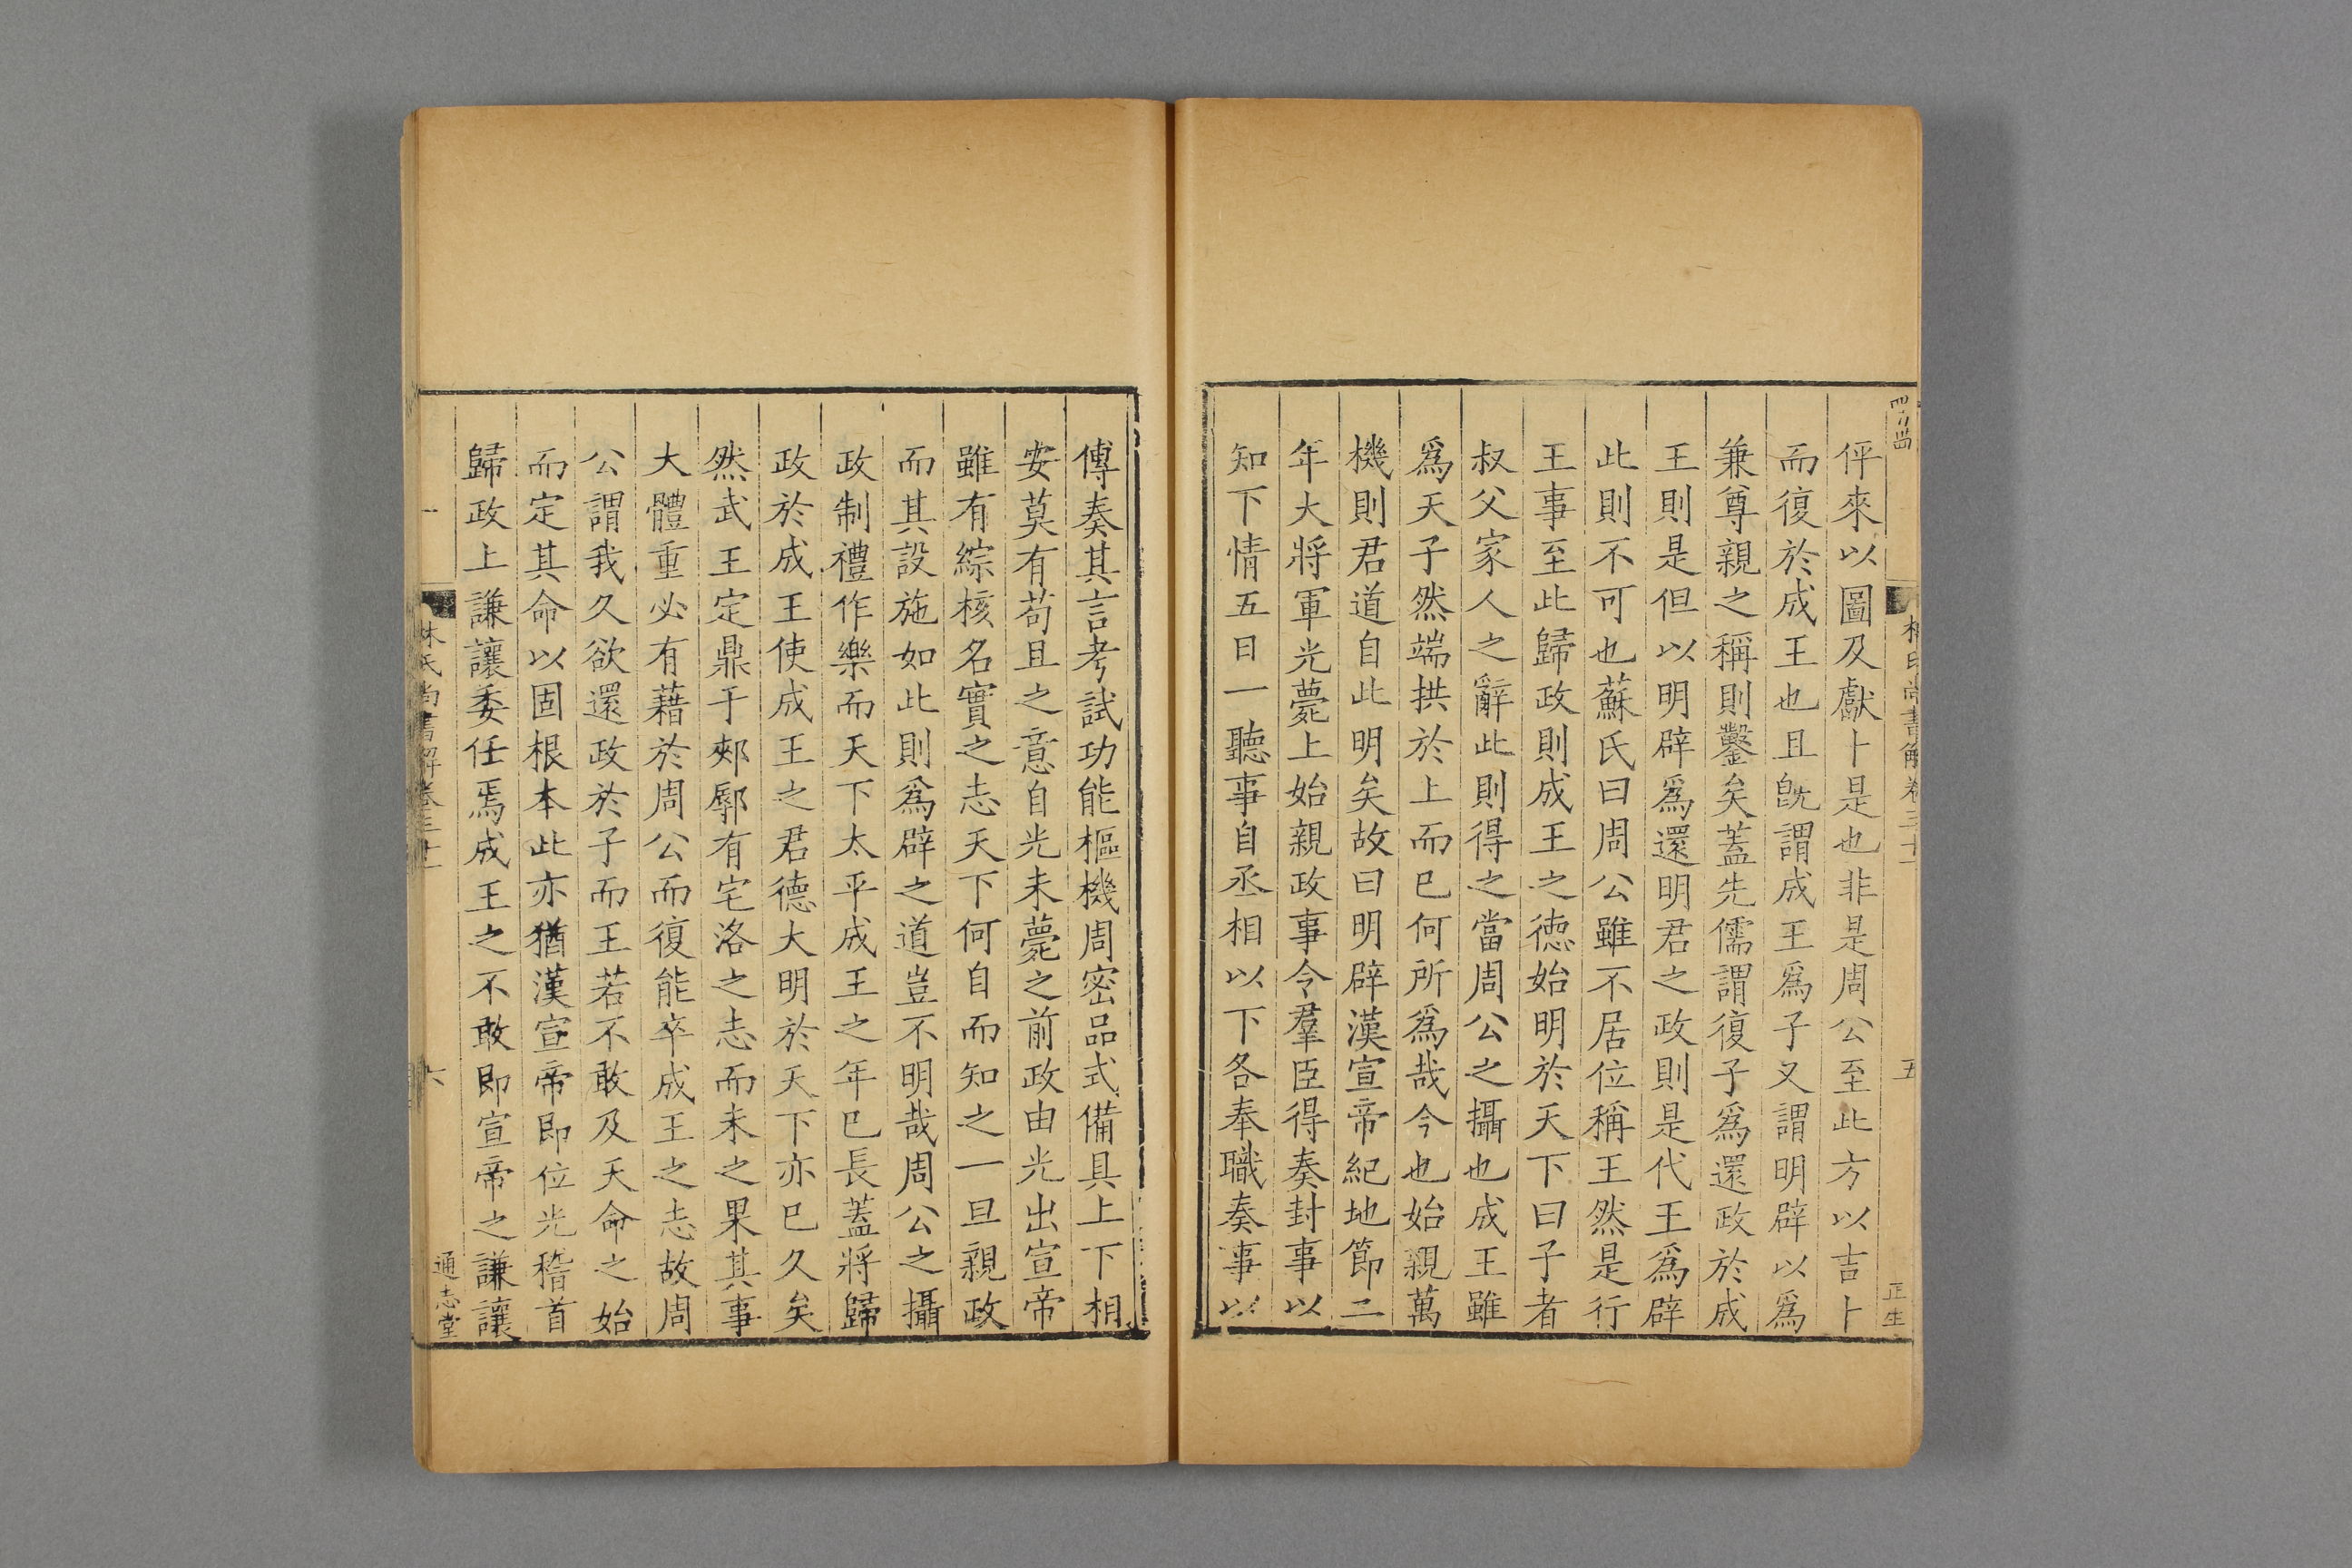 伻來以圖及獻卜是也非是周公至此方以吉卜
而復於成王也且旣謂成王爲子又謂明辟以爲
兼尊親之稱則鑿矣蓋先儒謂復子爲還政於成
王則是但以明辟爲還明君之政則是代王爲辟
此則不可也蘇氏曰周公雖不居位稱王然是行
王事至此歸政則成王之德始明於天下曰子者
叔父家人之辭此則得之當周公之攝也成王雖
爲天子然端拱於上而已何所爲哉今也始親萬
機則君道自此明矣故曰明辟漢宣帝紀地節二
年大將軍光薨上始親政事令羣臣得奏封事以
知下情五日一聽事自丞相以下各奉職奏事以
五
正生
傅奏其言考試功能樞機周密品式備具上下相
安莫有苟且之意自光未薨之前政由光出宣帝
雖有綜核名實之志天下何自而知之一旦親政
而其設施如此則爲辟之道豈不明哉周公之攝
政制禮作樂而天下太平成王之年已長蓋將歸
政於成王使成王之君德大明於天下亦已久矣
然武王定鼎于郟鄏有宅洛之志而未之果其事
大體重必有藉於周公而復能卒成王之志故周
公謂我久欲還政於子而王若不敢及天命之始
而定其命以固根本此亦猶漢宣帝即位光稽首
歸政上謙讓委任焉成王之不敢即宣帝之謙讓
林氏尚書解卷三十一
六
通志堂